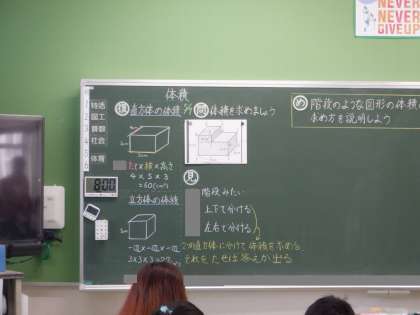 NEVER
NEVER
GIVEUP
体積
特活
図工
算数
社会
体育
8:00
復 直方体の体積
たて×横×高さ
4×5×3
=60(cm³)
立方体の体積
3×3×3=27
問 体積を求めましょう
見
階段みたい
上下で分ける
左右で分ける
2つの直方体に分けて体積を求める。
それをたせば答えが出る
め 階段のような図形の体積の
求め方を説明しよう